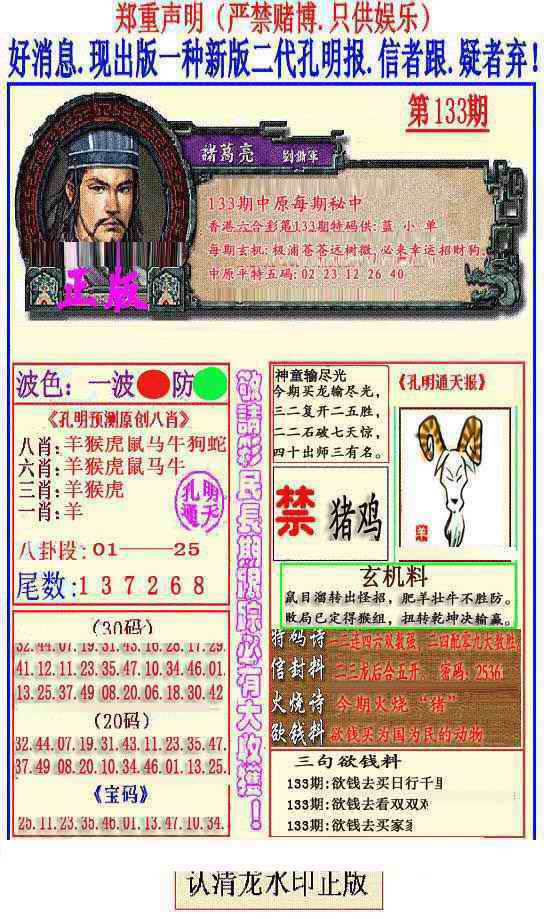 郑重声明（严禁赌博.只供娱乐）
好消息.现出版一种新版二代孔明报.信者跟.疑者弃！
第133期
諸葛亮
133期中原每期秘中
香港六合彩第133期特码供: 蓝 小 单
每期玄机: 极浦苍苍远树微, 必来幸运招财狗.
中原平特五码: 02 23 12 26 40
正版
波色：一波 防
《孔明预测原创八肖》
八肖:羊猴虎鼠马牛狗蛇
六肖:羊猴虎鼠马牛
三肖:羊猴虎
一肖:羊
孔明通天
八卦段：01——25
尾数:137268
(30码)
32.44.07.19.31.43.16.28.17.29.
41.12.11.23.35.47.10.34.46.01.
13.25.37.49.08.20.06.18.30.42
(20码)
32.44.07.19.31.43.11.23.35.47.
37.49.08.20.10.34.46.01.13.25.
《宝码》
25.11.23.35.46.01.13.47.10.34.
敬請彩民長期跟踪必有大收獲！
神童输尽光
今期买龙输尽光，
三二复开二五胜，
二二石破七天惊，
四十出师三有名。
《孔明通天报》
禁 猪鸡
羊
玄机料
鼠目溜转出怪招，肥羊壮牛不胜防。
败局已定得猴组，扭转乾坤决输赢。
特码诗 一二连四六双数强，二四配零九大数胜
信封料 二三龙后合五开，密码：2536.
火烧诗 今期火烧“猪”
欲钱料 欲钱买为国为民的动物
三句欲钱料
133期:欲钱去买日行千里
133期:欲钱去看双双
133期:欲钱去买家
认清龙水印正版